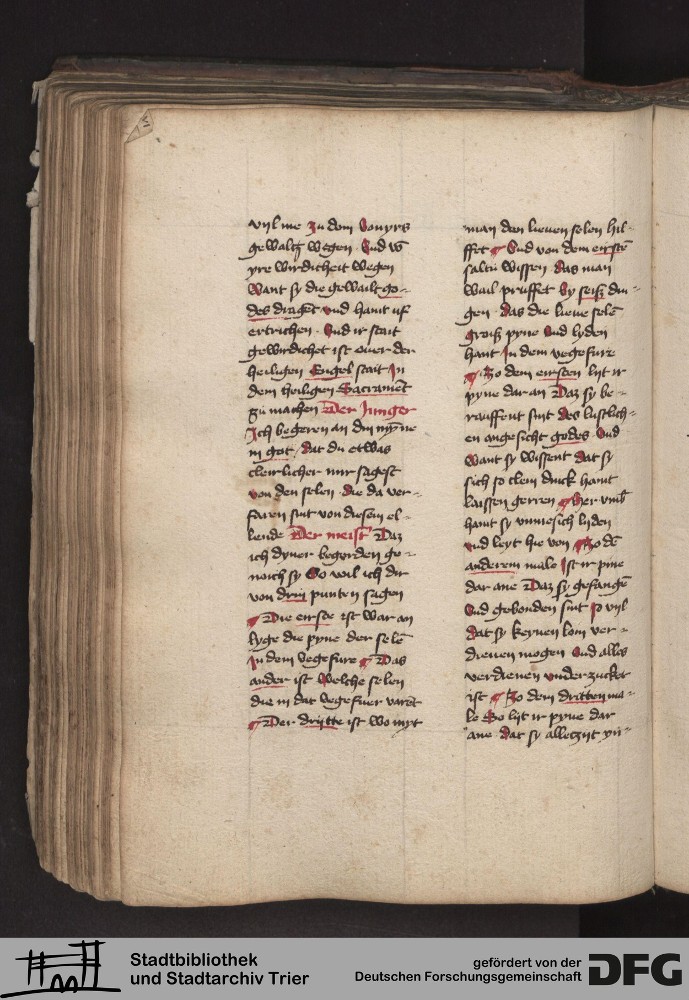 vijl me zu dom Conyrs
gewaltz wegen · Vnd vō
yre wirdicheit wegen
Want sy die gewailt go-
des dragēt vnd hant vf
ertrichen · Vnd ir stait
gewirdichet ist ouer der
heiligen Engel stait In
dem heiligen Sacramēt
zu machen Der Junger
Ich begeren an din mȳne
in got / dat du etwas
cleirlicher mir sagest
von den selen · die da ver-
faren sint von diesem el-
lende Der meist' Daz
ich dyner begerden ge-
noich sy So wil ich dir
von drin punten sagen
¶ Die eirste ist war an
lyge die pyne der selē
In dem vegefure ¶ Das
ander ist Welche selen
die in dat vegefuer varēt
¶ Der drijtte ist wo myt
man den lieuen selen hil-
ffet ¶ Vnd von dem eirstē
saltu wissen · das man
wail pruffet by seiß din-
gen · das die lieue selē
groiß pyne vnd lyden
hant In dem vegefure
¶ Zo dem eirsten lijt ir
pyne dar an Daz sy be-
rauffent sint des lustlich-
en angesicht godes · Vnd
Want sy wissent dat sy
sich so clein dinck hant
laissen gerren ¶ Her vmb
hant sy vnmesich lyden
vnd leyt hie von ¶ Zo dē
anderem male Ist ir pine
dar ane Daz sy gefangē
Vnd gebonden sint so vijl
dat sy keynen lom ver-
dienen mogen Vnd alles
verdienen vnder zucket
ist ¶ Zo dem dritten ma-
le So lijt ir pyne dar
ane · dat sy alleczijt yn-
Stadtbibliothek
und Stadtarchiv Trier
gefördert von der
Deutschen Forschungsgemeinschaft
DFG